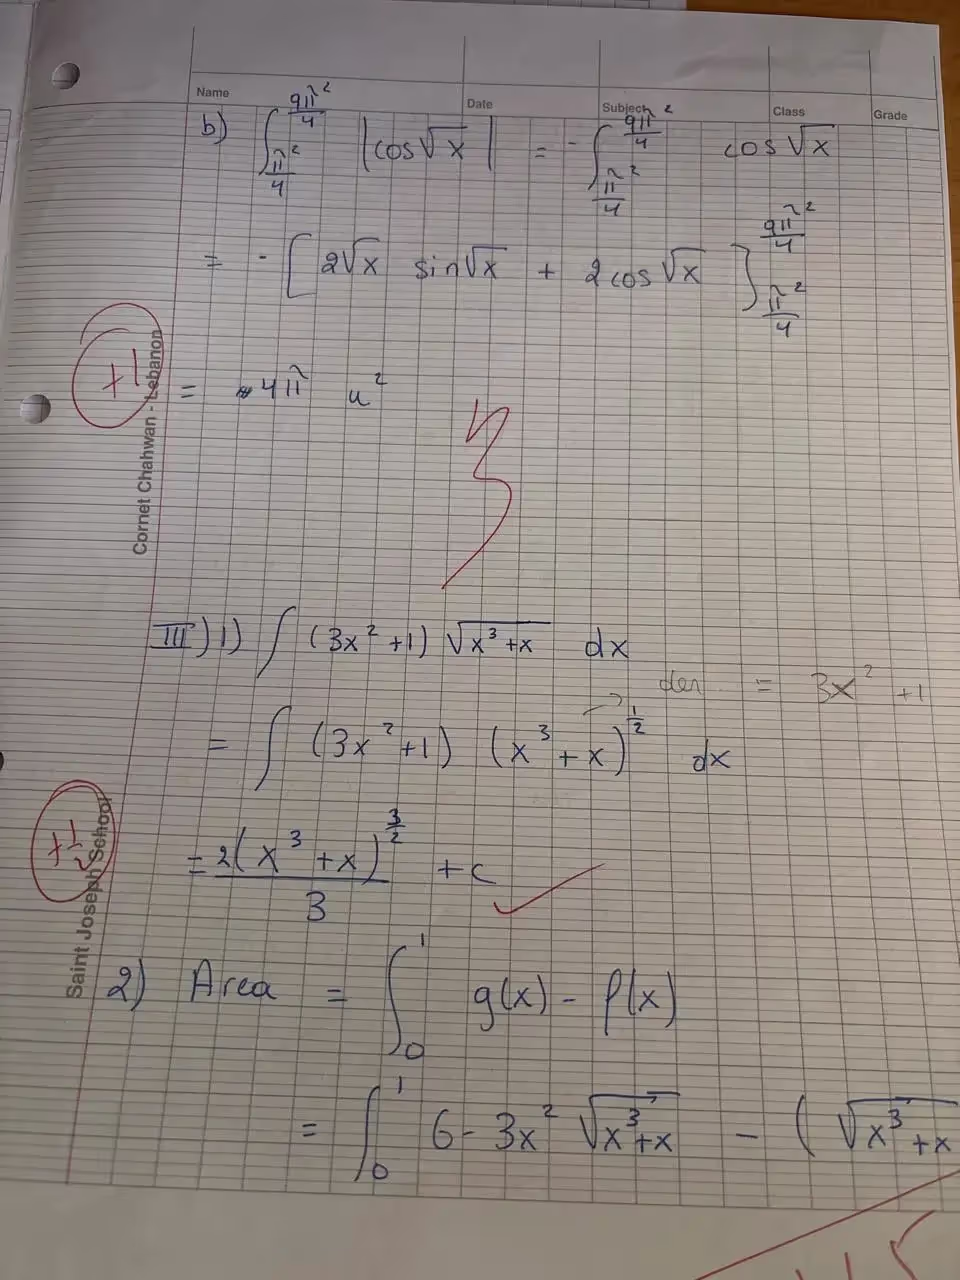 Name Date Subject Class Grade
b) ∫_{π²/4}^{9π²/4} |cos√x| = - ∫_{π²/4}^{9π²/4} cos√x
= - [ 2√x sin√x + 2 cos√x ]_{π²/4}^{9π²/4}
+1
= 4π u²
Cornet Chahwan - Lebanon
III) 1) ∫ (3x² + 1) √x³+x dx
der = 3x² + 1
= ∫ (3x² + 1) (x³ + x)^{1/2} dx
+1/2
= 2(x³ + x)^{3/2} / 3 + c
Saint Joseph School
2) Area = ∫_0^1 g(x) - f(x)
= ∫_0^1 6 - 3x² √x³+x - ( √x³+x